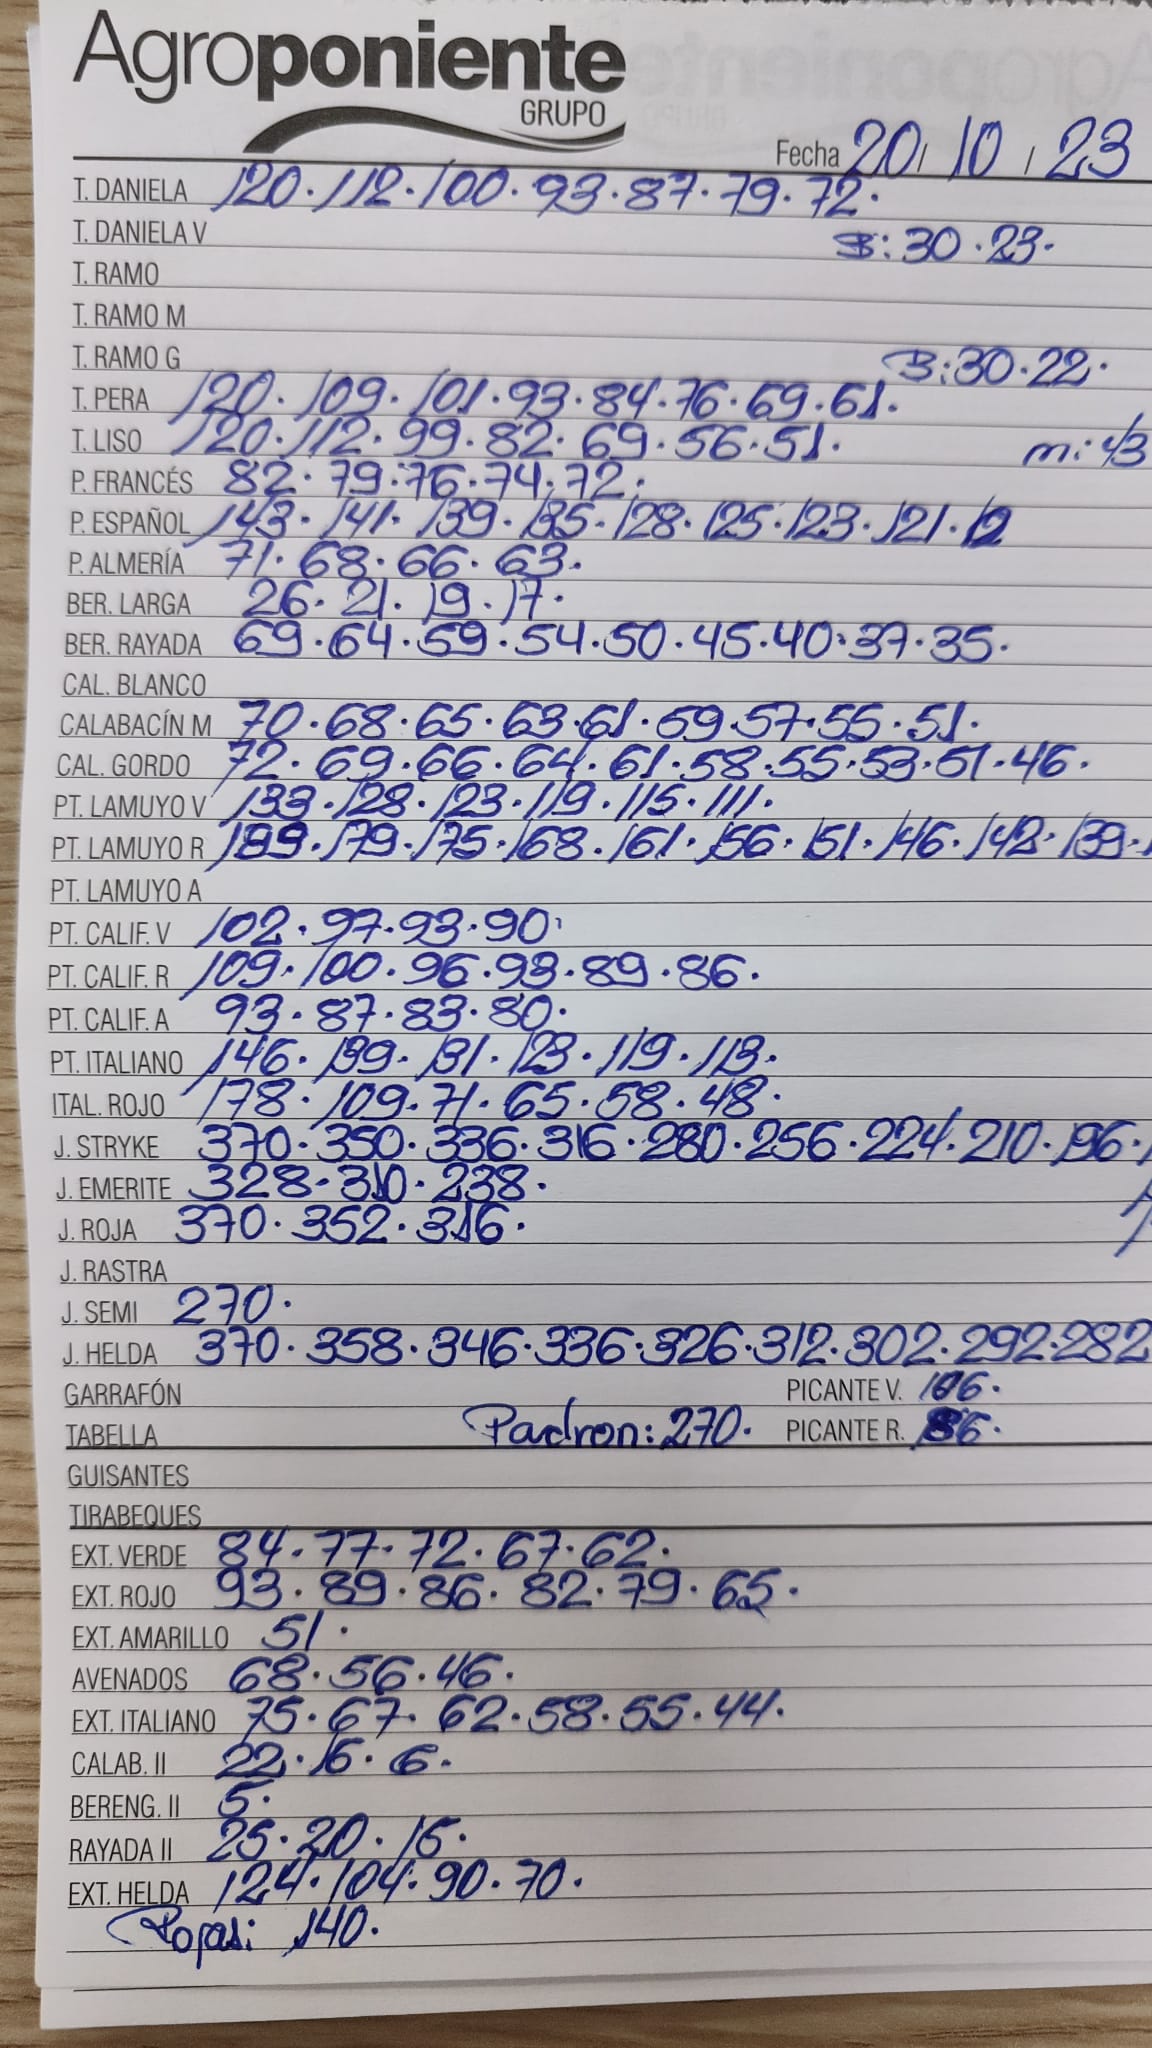 Agroponiente
GRUPO
Fecha 20 / 10 / 23
T. DANIELA 120 · 112 · 100 · 93 · 87 · 79 · 72 ·
T. DANIELA V B: 30 · 23 ·
T. RAMO
T. RAMO M
T. RAMO G B: 30 · 22 ·
T. PERA 120 · 109 · 101 · 93 · 84 · 76 · 69 · 61 ·
T. LISO 120 · 112 · 99 · 82 · 69 · 56 · 51 · m: 43
P. FRANCÉS 82 · 79 · 76 · 74 · 72 ·
P. ESPAÑOL 143 · 141 · 139 · 135 · 128 · 125 · 123 · 121 ·
P. ALMERÍA 71 · 68 · 66 · 63 ·
BER. LARGA 26 · 21 · 19 · 17 ·
BER. RAYADA 69 · 64 · 59 · 54 · 50 · 45 · 40 · 37 · 35 ·
CAL. BLANCO
CALABACÍN M 70 · 68 · 65 · 63 · 61 · 59 · 57 · 55 · 51 ·
CAL. GORDO 72 · 69 · 66 · 64 · 61 · 58 · 55 · 53 · 51 · 46 ·
PT. LAMUYO V 133 · 128 · 123 · 119 · 115 · 111 ·
PT. LAMUYO R 179 · 175 · 168 · 161 · 156 · 151 · 146 · 142 · 139 ·
PT. LAMUYO A
PT. CALIF. V 102 · 97 · 93 · 90 ·
PT. CALIF. R 109 · 100 · 96 · 93 · 89 · 86 ·
PT. CALIF. A 93 · 87 · 83 · 80 ·
PT. ITALIANO 146 · 139 · 131 · 123 · 119 · 113 ·
ITAL. ROJO 178 · 109 · 71 · 65 · 58 · 48 ·
J. STRYKE 370 · 350 · 336 · 316 · 280 · 256 · 224 · 210 · 196 ·
J. EMERITE 328 · 310 · 238 ·
J. ROJA 370 · 352 · 316 ·
J. RASTRA
J. SEMI 270 ·
J. HELDA 370 · 358 · 346 · 336 · 326 · 312 · 302 · 292 · 282
GARRAFÓN PICANTE V.
TABELLA Padron: 270 · PICANTE R.
GUISANTES
TIRABEQUES
EXT. VERDE 84 · 77 · 72 · 67 · 62 ·
EXT. ROJO 93 · 89 · 86 · 82 · 79 · 65 ·
EXT. AMARILLO 51 ·
AVENADOS 68 · 56 · 46 ·
EXT. ITALIANO 75 · 67 · 62 · 58 · 55 · 44 ·
CALAB. II 22 · 16 · 6 ·
BERENG. II 5 ·
RAYADA II 25 · 20 · 15 ·
EXT. HELDA 124 · 104 · 90 · 70 ·
Rojas: 140 ·